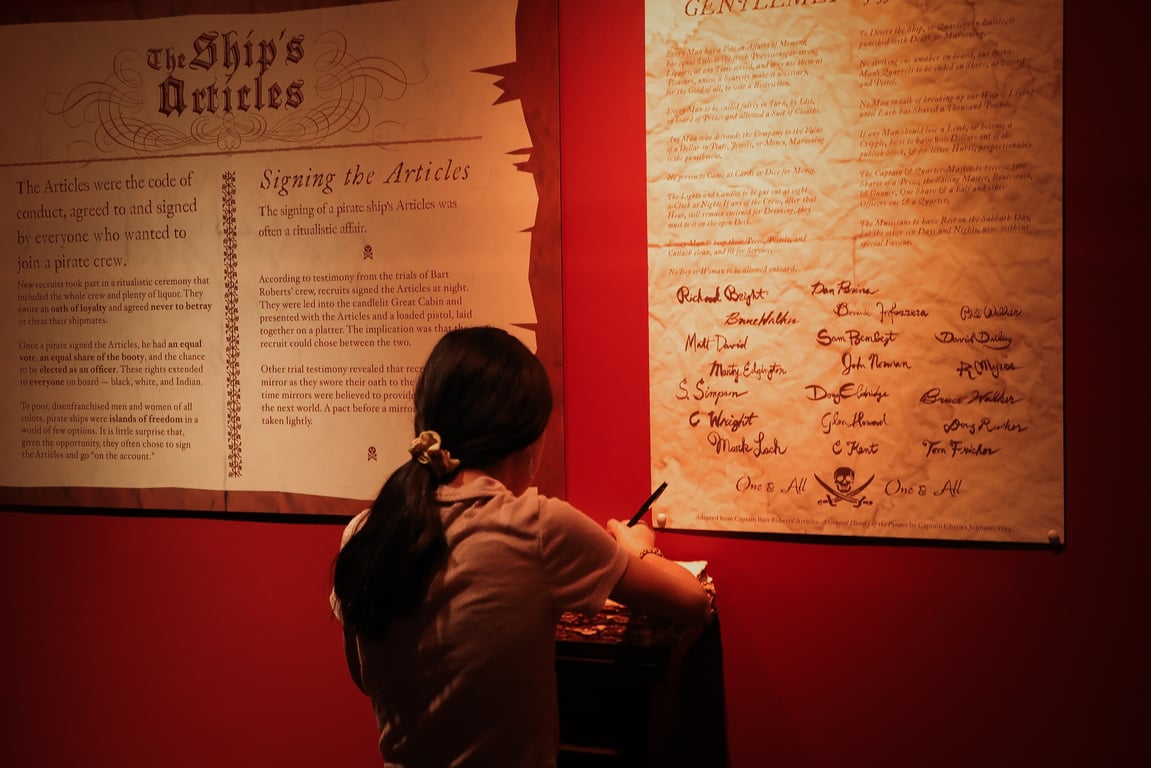 The Ship's
Articles
The Articles were the code of
conduct, agreed to and signed
by everyone who wanted to
join a pirate crew.
New recruits took part in a ritualistic ceremony that
included the whole crew and plenty of liquor. They
swore an oath of loyalty and agreed never to betray
or cheat their shipmates.
Once a pirate signed the Articles, he had an equal
vote, an equal share of the booty, and the chance
to be elected as an officer. These rights extended
to everyone on board — black, white, and Indian.
To poor, disenfranchised men and women of all
colors, pirate ships were islands of freedom in a
world of few options. It is little surprise that,
given the opportunity, they often chose to sign
the Articles and go "on the account."
Signing the Articles
The signing of a pirate ship's Articles was
often a ritualistic affair.
According to testimony from the trials of Bart
Roberts' crew, recruits signed the Articles at night.
They were led into the candlelit Great Cabin and
presented with the Articles and a loaded pistol, laid
together on a platter. The implication was that the
recruit could chose between the two.
Other trial testimony revealed that
mirror as they swore their oath to the
time mirrors were believed to provide
the next world. A pact before a mirror
taken lightly.
Every Man has a Vote in Affairs of Moment,
has equal Title to the fresh Provisions, or strong
Liquors, at any Time seized, and may use them at
Pleasure, unless a Scarcity make it necessary,
for the Good of all, to vote a Restriction.
Every Man to be called fairly in Turn, by List,
on board of Prizes and allowed a Suit of Cloaths.
Any Man who defrauds the Company to the Value
of a Dollar in Plate, Jewels, or Money, Marooning
is the punishment.
No person to Game at Cards or Dice for Money.
The Lights and Candles to be put out at eight
a-Clock at Night: If any of the Crew, after that
Hour, still remain enclined for Drinking, they
must to it on the open Deck.
Every Man to keep their Piece, Pistols, and
Cutlash clean, and fit for Service.
No Boy or Woman to be allowed onboard.
To Desert the Ship, or Quarters in Battle, is
punished with Death or Marooning.
No striking one another on board, but every
Man's Quarrels to be ended on Shore, at Sword
and Pistol.
No Man to talk of breaking up our Way of Living
until Each has Shared a Thousand Pounds.
If any Man should lose a Limb, or become a
Cripple, he is to have 800 Dollars out of the
publick Stock, & for lesser Hurts, proportionably.
The Captain & Quarter-Master to receive two
Shares of a Prize; the Sailing Master, Boatswain,
& Gunner, One Share & a half and other
Officers one & a Quarter.
The Musicians to have Rest on the Sabbath Day,
but the other six Days and Nights, none without
special Favour.
Richard Bright
Dan
Bruce Walker
Matt David
Sam
David
Marty Edgington
John Norman
R Myers
S. Simpson
Doug Eldridge
Bruce Walker
C Wright
Glen Howard
Doug
Mark Lach
C Kent
Tom
One & All One & All
Adapted from Captain Bart Roberts' Articles. A General History of the Pyrates by Captain Charles Johnson, 1724.